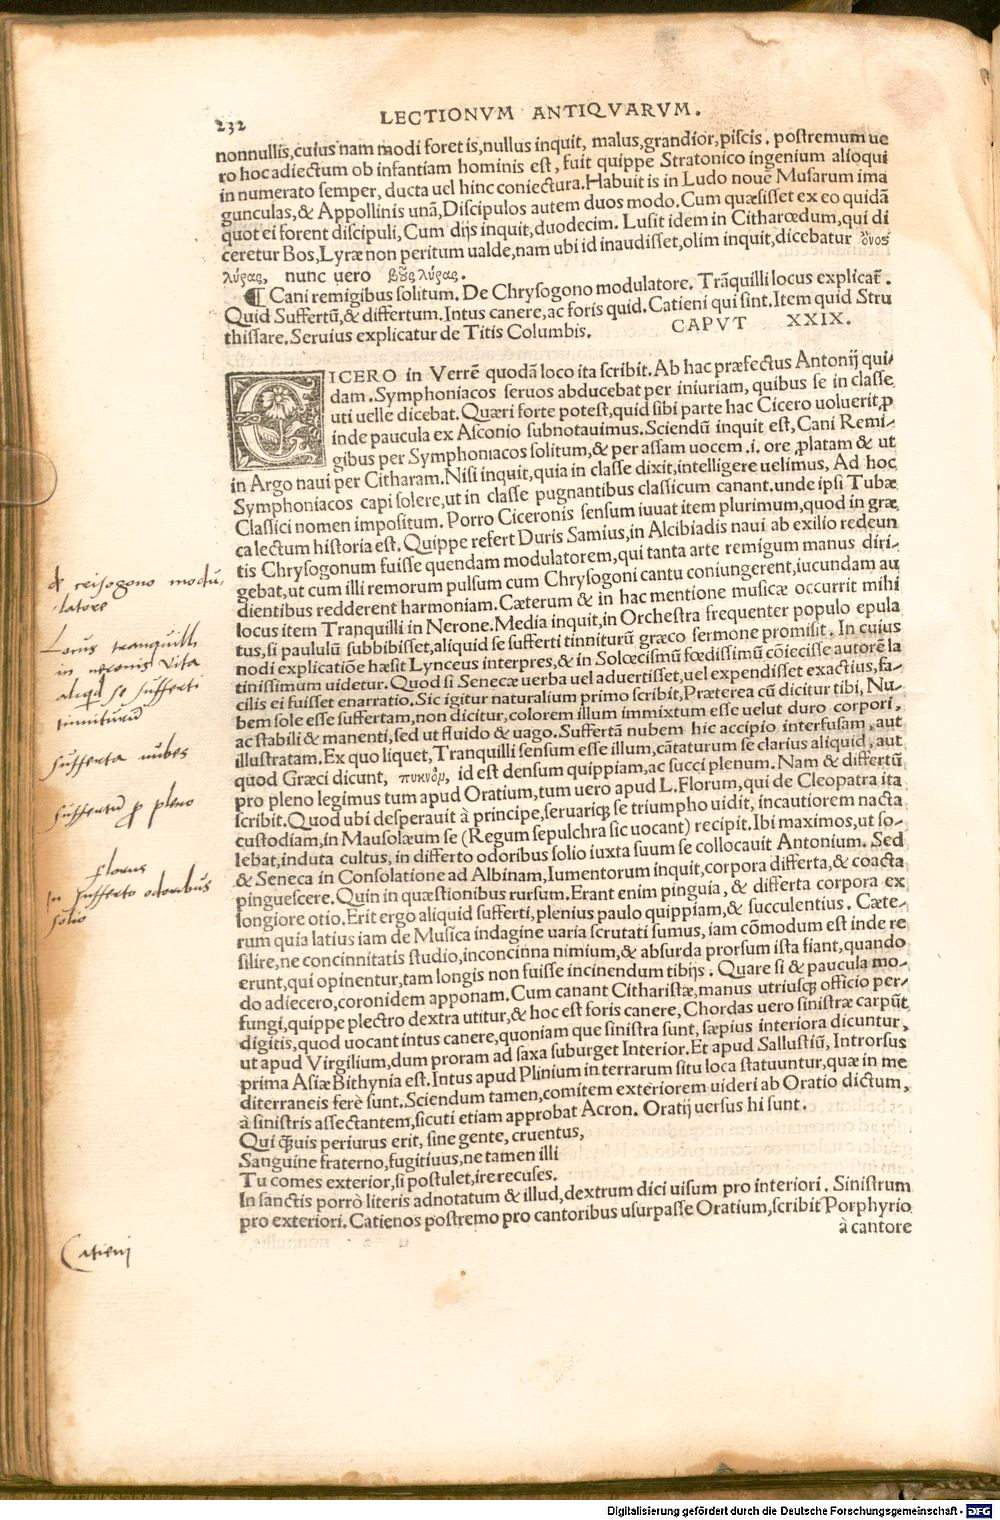 232
LECTIONVM ANTIQVARVM.
nonnullis,cuius nam modi foret is,nullus inquit, malus,grandior,piscis. postremum ue
ro hoc adiectum ob infantiam hominis est, fuit quippe Stratonico ingenium alioqui
in numerato semper, ducta uel hinc coniectura.Habuit is in Ludo nouē Musarum ima
gunculas,& Appollinis unā,Discipulos autem duos modo.Cum quæsisset ex eo quidā
quot ei forent discipuli,Cum dijs inquit,duodecim. Lusit idem in Citharœdum,qui di
ceretur Bos,Lyræ non peritum ualde,nam ubi id inaudisset,olim inquit,dicebatur ὄνος
λύρας, nunc uero βοῦς λύρας.
¶ Cani remigibus solitum. De Chrysogono modulatore. Trāquilli locus explicat̃.
Quid Suffertū,& differtum.Intus canere,ac foris quid.Catieni qui sint.Item quid Stru
thissare.Seruius explicatur de Titis Columbis. CAPVT XXIX.
CICERO in Verrē quodā loco ita scribit.Ab hac præfectus Antonij qui/
dam.Symphoniacos seruos abducebat per iniuriam, quibus se in classe
uti uelle dicebat.Quæri forte potest,quid sibi parte hac Cicero uoluerit,ꝓ
inde paucula ex Asconio subnotauimus.Sciendū inquit est,Cani Remi-
gibus per Symphoniacos solitum,& per assam uocem .i. ore ꝓlatam & ut
in Argo naui per Citharam.Nisi inquit,quia in classe dixit,intelligere uelimus, Ad hoc
Symphoniacos capi solere,ut in classe pugnantibus classicum canant,unde ipsi Tubæ
Classici nomen impositum. Porro Ciceronis sensum iuuat item plurimum,quod in græ
ca lectum historia est.Quippe refert Duris Samius,in Alcibiadis naui ab exilio redeun
tis Chrysogonum fuisse quendam modulatorem,qui tanta arte remigum manus diri-
gebat,ut cum illi remorum pulsum cum Chrysogoni cantu coniungerent,iucundam au
dientibus redderent harmoniam.Cæterum & in hac mentione musicæ occurrit mihi
locus item Tranquilli in Nerone.Media inquit,in Orchestra frequenter populo epula
tus,si paululū subbibisset,aliquid se sufferti tinniturū græco sermone promisit. In cuius
nodi explicatiōe hæsit Lynceus interpres,& in Solœcismū fœdissimū cōiecisse autorē la
tinissimum uidetur. Quod si Senecæ uerba uel aduertisset,uel expendisset exactius,fa-
cilis ei fuisset enarratio.Sic igitur naturalium primo scribit,Præterea cū dicitur tibi, Nu-
bem sole esse suffertam,non dicitur,colorem illum immixtum esse uelut duro corpori,
ac stabili & manenti,sed ut fluido & uago.Suffertā nubem hic accipio interfusam, aut
illustratam.Ex quo liquet,Tranquilli sensum esse illum,cātaturum se clarius aliquid, aut
quod Græci dicunt, πυκνὸμ, id est densum quippiam,ac succi plenum. Nam & differtū
pro pleno legimus tum apud Oratium,tum uero apud L.Florum,qui de Cleopatra ita
scribit.Quod ubi desperauit à principe,seruariq; se triumpho uidit, incautiorem nacta
custodiam,in Mausolæum se (Regum sepulchra sic uocant) recipit.Ibi maximos,ut so-
lebat,induta cultus, in differto odoribus solio iuxta suum se collocauit Antonium. Sed
& Seneca in Consolatione ad Albinam,Iumentorum inquit,corpora differta,& coacta
pinguescere.Quin in quæstionibus rursum.Erant enim pinguia, & differta corpora ex
longiore otio.Erit ergo aliquid sufferti,plenius paulo quippiam,& succulentius. Cæte-
rum quia latius iam de Musica indagine uaria scrutati sumus, iam cōmodum est inde re
silire,ne concinnitatis studio,inconcinna nimium,& absurda prorsum ista fiant,quando
erunt,qui opinentur,tam longis non fuisse incinendum tibijs. Quare si & paucula mo-
do adiecero,coronidem apponam.Cum canant Citharistæ,manus utriusq; officio per-
fungi,quippe plectro dextra utitur,& hoc est foris canere, Chordas uero sinistræ carpūt
digitis,quod uocant intus canere,quoniam que sinistra sunt, sæpius interiora dicuntur,
ut apud Virgilium,dum proram ad saxa suburget Interior.Et apud Sallustiū, Introrsus
prima Asiæ Bithynia est.Intus apud Plinium in terrarum situ loca statuuntur,quæ in me
diterraneis ferè sunt.Sciendum tamen,comitem exteriorem uideri ab Oratio dictum,
à sinistris assectantem,sicuti etiam approbat Acron. Oratij uersus hi sunt.
Qui q̃uis periurus erit, sine gente, cruentus,
Sanguine fraterno,fugitiuus,ne tamen illi
Tu comes exterior,si postulet,ire recuses.
In sanctis porrò literis adnotatum & illud,dextrum dici uisum pro interiori. Sinistrum
pro exteriori.Catienos postremo pro cantoribus usurpasse Oratium,scribit Porphyrio
à cantore
de crisogono modu,
latore
Locus tranquilli
in neronis vita
aliqd se sufferti
tinniturū
sufferta nubes
suffertū ꝓ pleno
florus
In sufferto odoribus
solio
Catieni
Digitalisierung gefördert durch die Deutsche Forschungsgemeinschaft - DFG